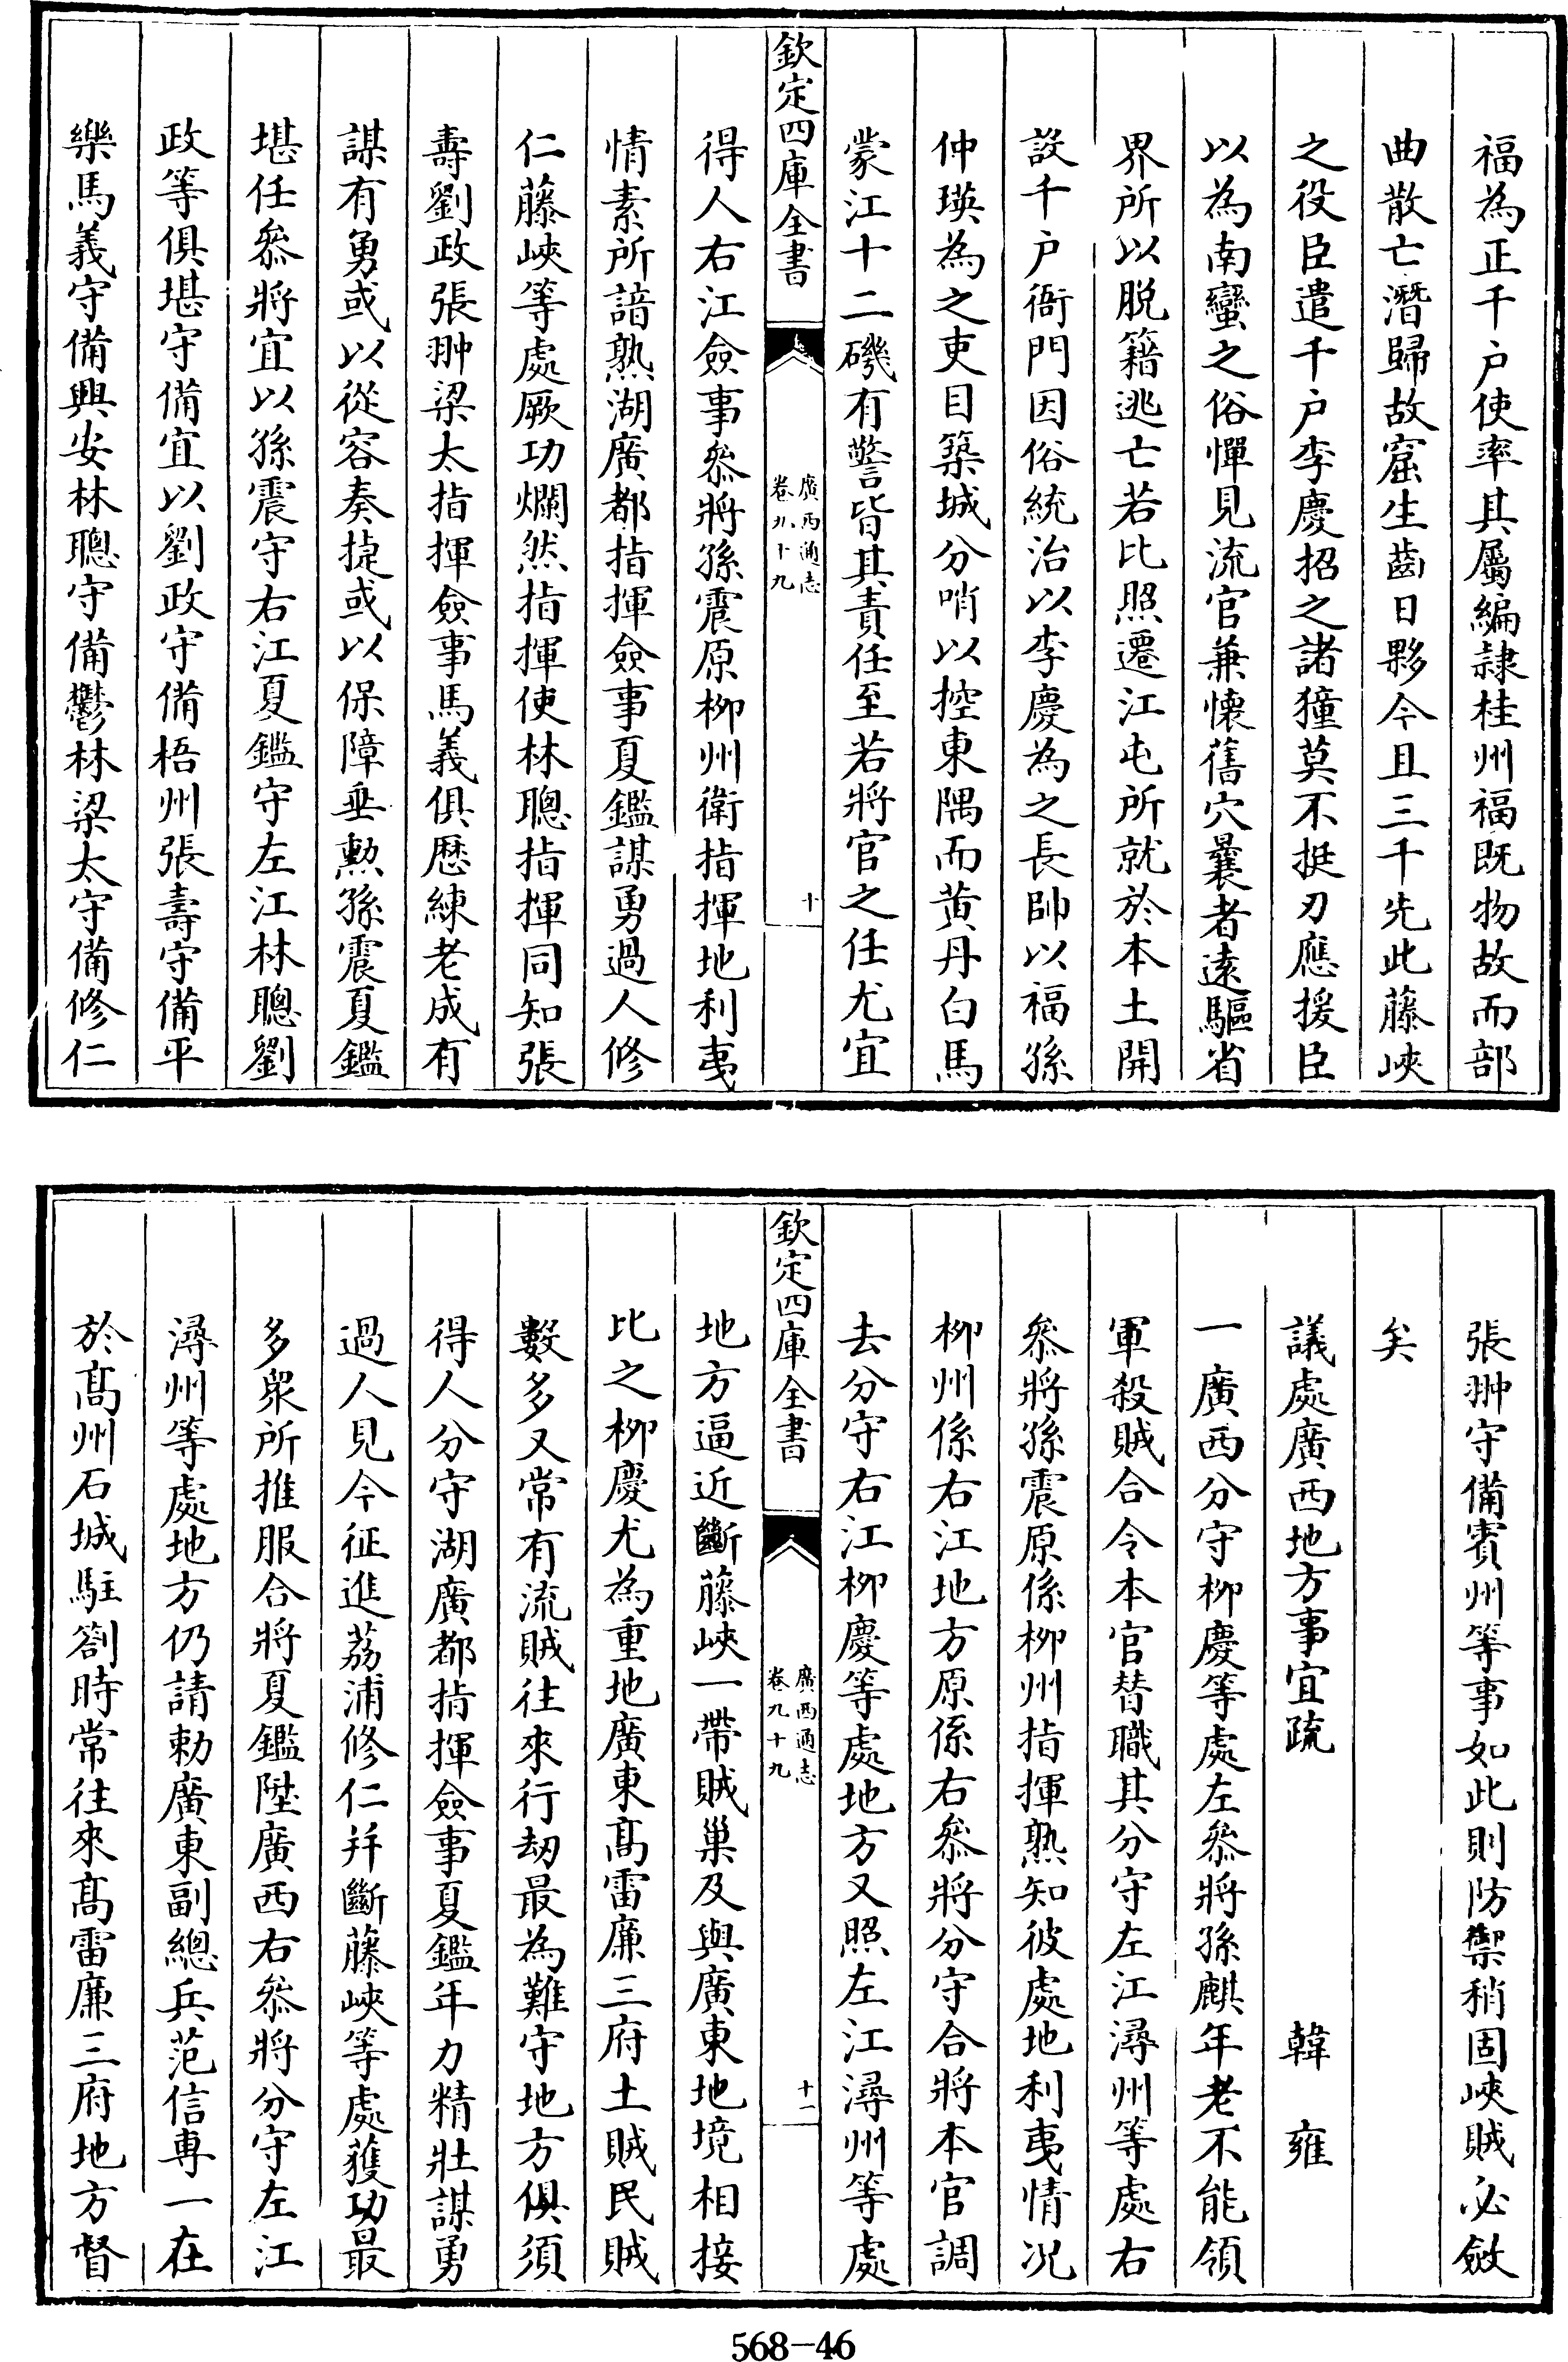 福為正千户使率其屬編隷桂州福既物故而部
曲散亡潛歸故窟生齒日夥今且三千先此藤峽
之役臣遣千户李慶招之諸獞莫不挺刃應援臣
以為南蠻之俗憚見流官兼懷舊穴曩者遠驅省
界所以脱籍逃亡若比照遷江屯所就於本土開
設千户衙門因俗統治以李慶為之長帥以福孫
仲瑛為之吏目築城分哨以控東隅而黄丹白馬
蒙江十二磯有警皆其責任至若將官之任尤宜
欽定四庫全書
廣西通志
卷九十九
十
得人右江僉事叅將孫震原柳州衛指揮地利夷
情素所諳熟湖廣都指揮僉事夏鑑謀勇過人修
仁藤峽等處厥功爛然指揮使林聰指揮同知張
壽劉政張翀梁太指揮僉事馬義俱歴練老成有
謀有勇或以從容奏捷或以保障垂勲孫震夏鑑
堪任叅將宜以孫震守右江夏鑑守左江林聰劉
政等俱堪守備宜以劉政守備梧州張壽守備平
樂馬義守備興安林聰守備鬱林梁太守備修仁
張翀守備賓州等事如此則防禦稍固峽賊必斂
矣
議處廣西地方事宜疏 韓雍
一廣西分守柳慶等處左叅將孫麒年老不能領
軍殺賊合令本官替職其分守左江潯州等處右
叅將孫震原係柳州指揮熟知彼處地利夷情况
柳州係右江地方原係右叅將分守合將本官調
去分守右江柳慶等處地方又照左江潯州等處
欽定四庫全書
廣西通志
卷九十九
十一
地方逼近斷藤峽一帶賊巢及與廣東地境相接
比之柳慶尤為重地廣東髙雷廉三府土賊民賊
數多又常有流賊往來行刼最為難守地方俱須
得人分守湖廣都指揮僉事夏鑑年力精壯謀勇
過人見今征進荔浦修仁并斷藤峽等處獲功最
多衆所推服合將夏鑑陞廣西右叅將分守左江
潯州等處地方仍請勅廣東副總兵范信專一在
於髙州石城駐劄時常往來髙雷廉三府地方督
568-46